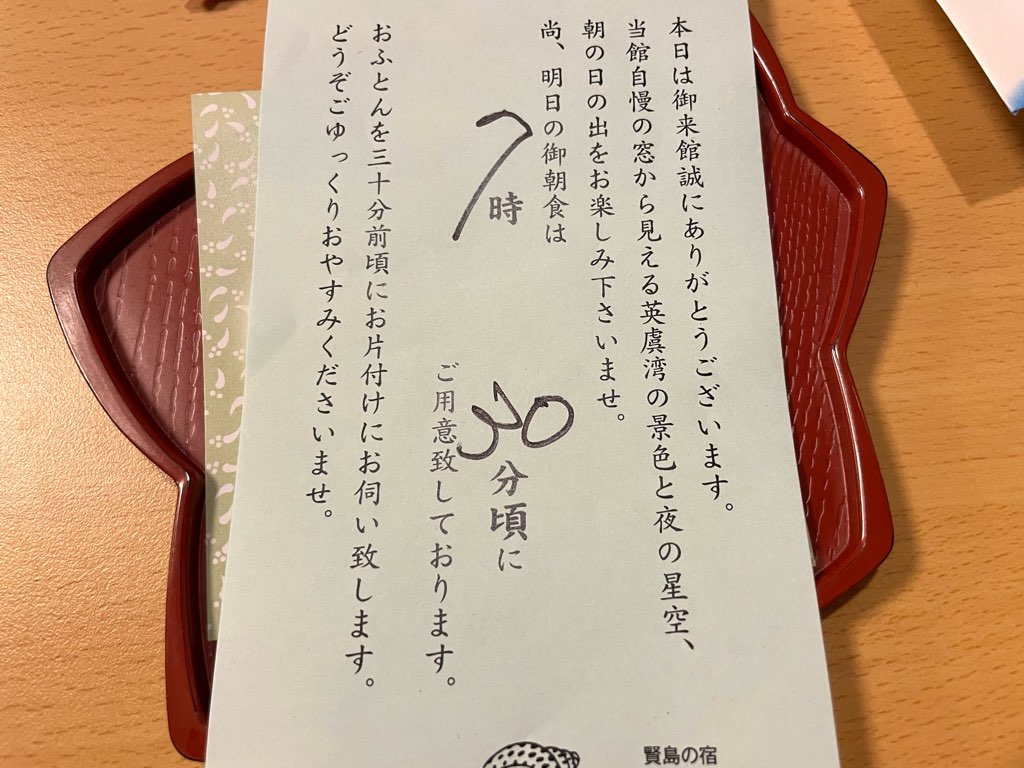 本日は御来館誠にありがとうございます。
当館自慢の窓から見える英虞湾の景色と夜の星空、
朝の日の出をお楽しみ下さいませ。
尚、明日の御朝食は
7時30分頃に
ご用意致しております。
おふとんを三十分前頃にお片付けにお伺い致します。
どうぞごゆっくりおやすみくださいませ。
賢島の宿